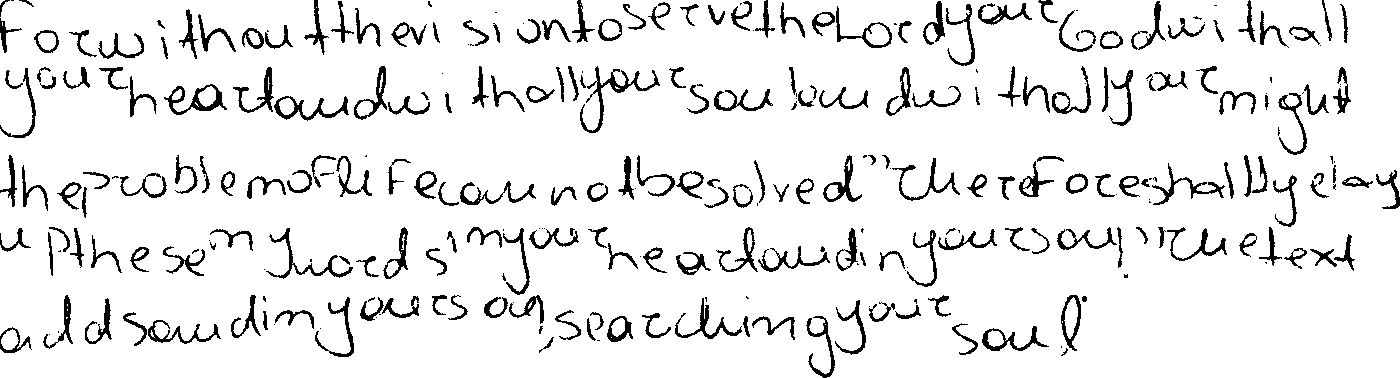 For without the vision to serve the Lord your God with all
your heart and with all your soul and with all your might
the problem of life cannot be solved "Therefore shall ye lay
up these my words in your heart and in your soul", The text
adds and in your soul, searching your soul.